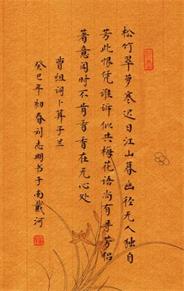 松竹翠萝寒迟日江山暮幽径无人独自
芳此恨凭谁诉似共梅花语尚有寻芳侣
著意闻时不肯香香在无心处
曹组词卜算子兰
癸巳年初春刘志明书于南戴河